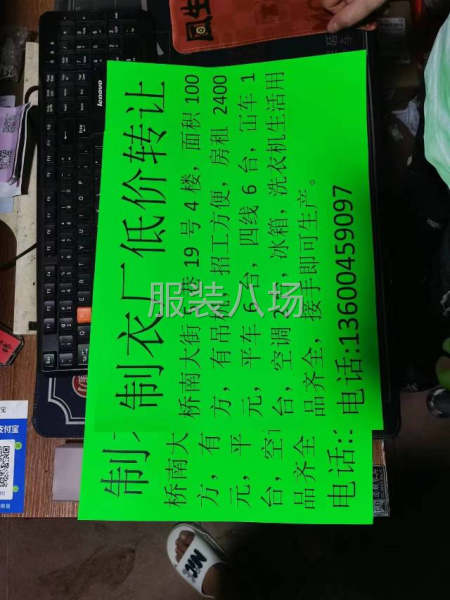 制衣厂低价转让
桥南大街 巷 19 号 4 楼，面积 100
方，有吊机，招工方便，房租 2400
元，平车 6 台，四线 6 台，冚车 1
台，空调 ，冰箱，洗衣机生活用
品齐全，接手即可生产。
电话:13600459097
服装八场
制
桥南大
方，有
元，平
台，空
品齐全
电话:
lenovo
支付宝